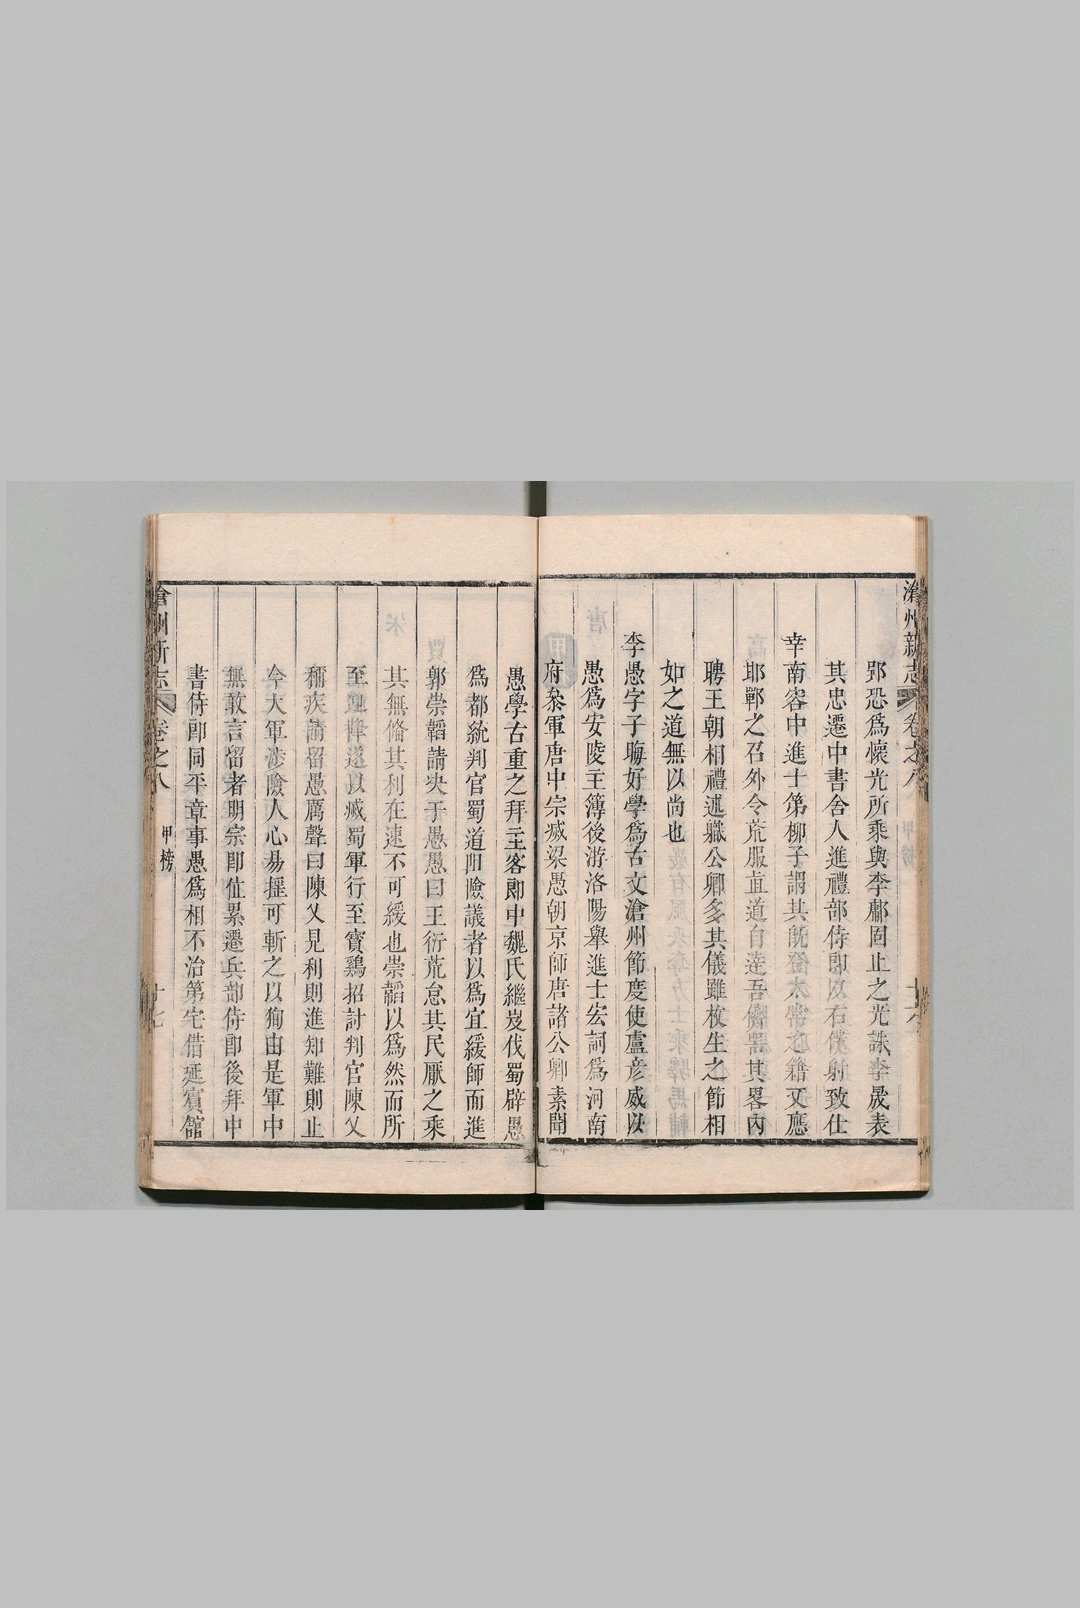 滄州新志 卷之八
郢恐爲懷光所乘與李鄘固止之光誅李晟表
其忠遷中書舍人進禮部侍郎以右僕射致仕
幸南容中進士第柳子謂其旣登太常
耶鄲之召外令荒服直道自達吾
聘王朝相禮述職公卿多其儀雖枚生之節相
如之道無以尚也
李愚字子晦好學爲古文滄州節度使盧彦威以
愚爲安陵主簿後游洛陽舉進士宏詞爲河南
府叅軍唐中宗滅梁愚朝京師唐諸公卿素聞
愚學古重之拜主客郎中魏氏繼岌伐蜀辟愚
爲都統判官蜀道阻險議者以爲宜緩師而進
郭崇韜請决于愚愚曰王衍荒怠其民厭之乘
其無備其利在速不可緩也崇韜以爲然而所
至迎降遂以滅蜀軍行至寳鷄招討判官陳乂
稱疾請留愚厲聲曰陳乂見利則進知難則止
今大軍渉險人心易揺可斬之以狥由是軍中
無敢言留者明宗即位累遷兵部侍郎後拜中
書侍郎同平章事愚爲相不治第宅借延賓舘
滄州新志 卷之八 甲榜 十七